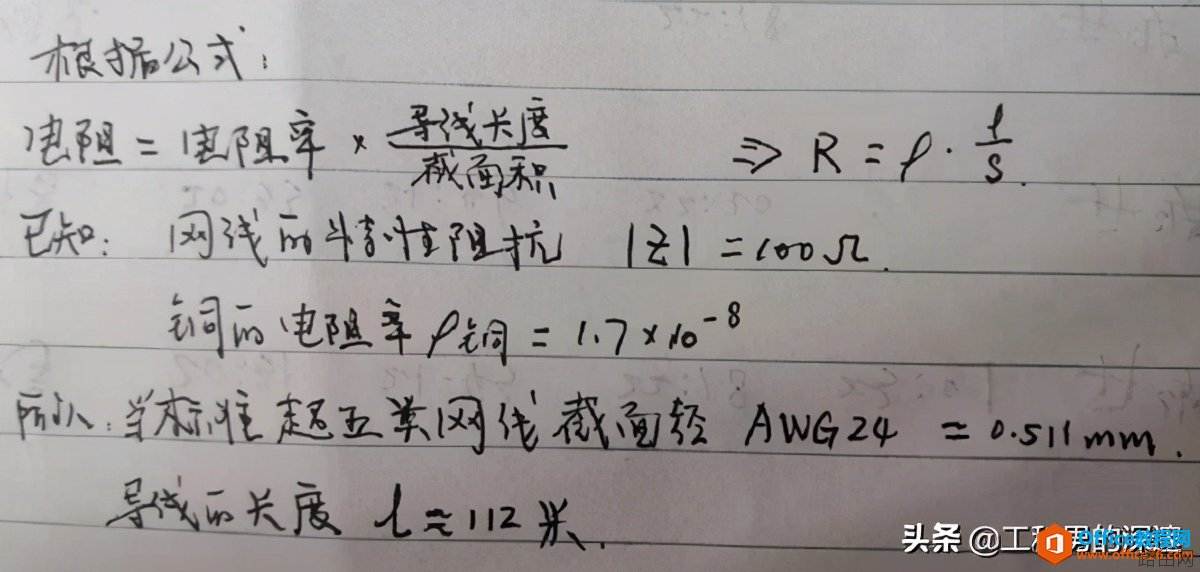 根据公式：
电阻 = 电阻率 × 导线长度/截面积 ⇒ R = ρ · l/S.
已知：网线的特性阻抗 |Z| = 100Ω.
铜的电阻率 ρ铜 = 1.7×10⁻⁸
所以：当标准超五类网线截面径 AWG24 = 0.511mm.
导线的长度 l≈112米.
头条 @工程男的深邃
Office教程网
www.office26.com
路由网